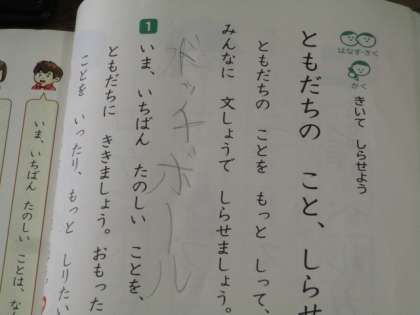 はなす・きく
かく
きいて しらせよう
ともだちの こと、しらせ
ともだちの ことを もっと しって、
みんなに 文しょうで しらせましょう。
ボッチボール
1
いま、いちばん たのしい ことを、
ともだちに ききましょう。おもった
ことを いったり、もっと しりたい
いま、いちばん
たのしい ことは、な